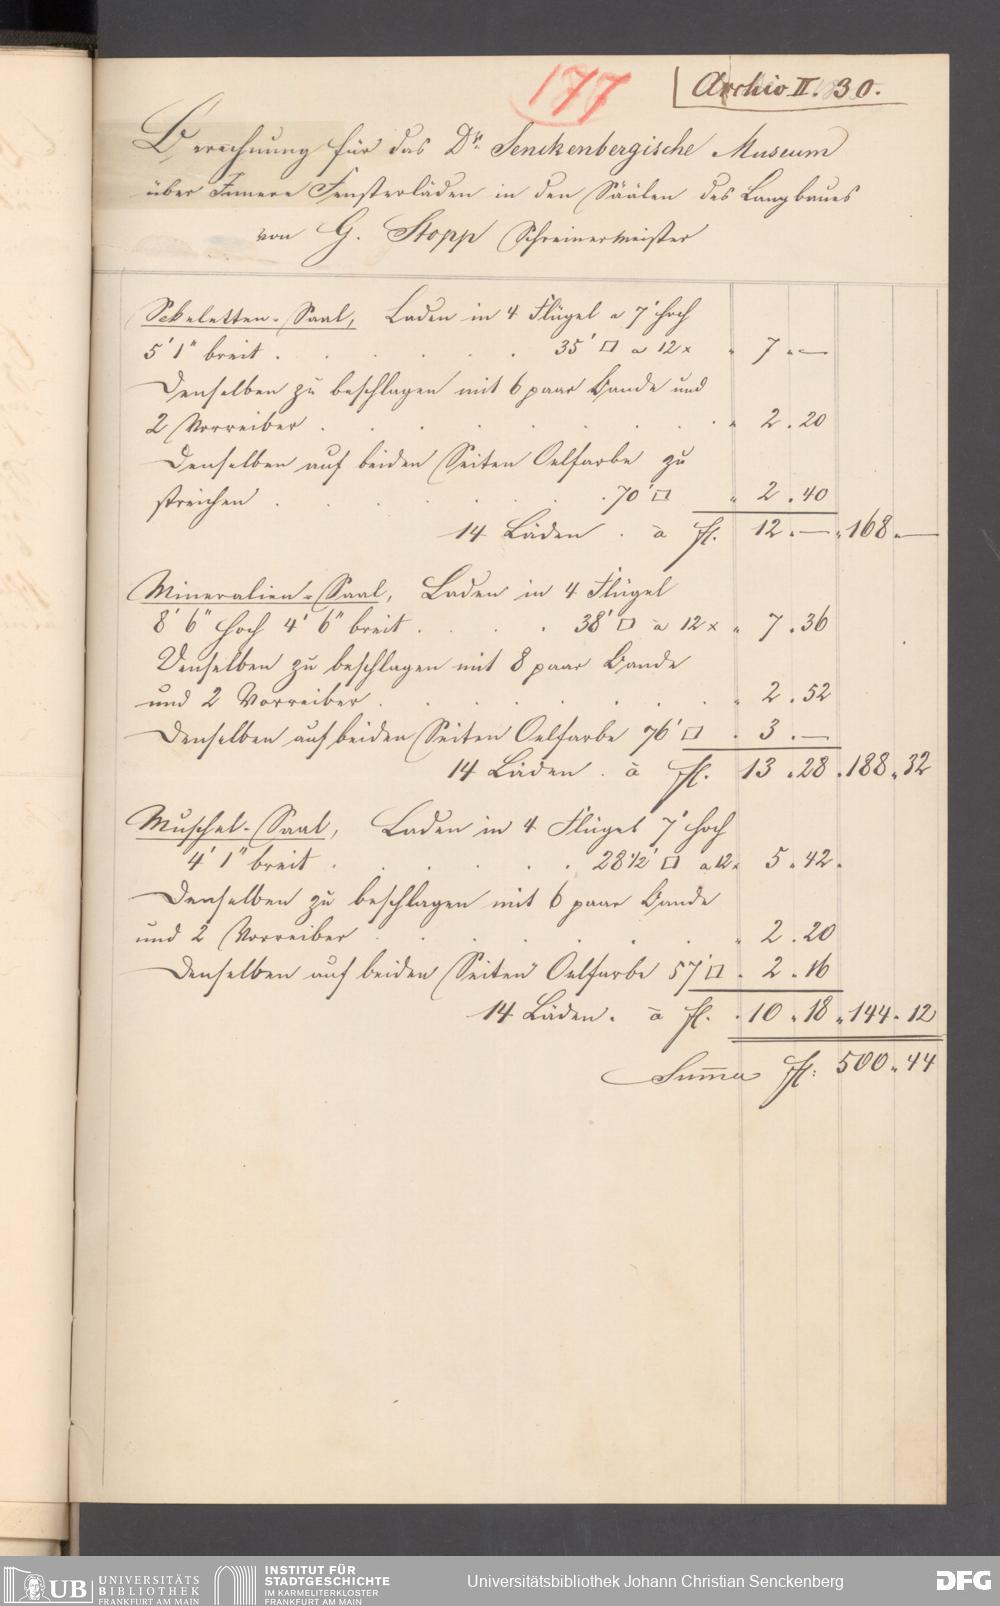 177
Archiv II. 30.
Berechnung für das Dr. Senckenbergische Museum
über Innere Fensterläden in den Säälen des Langbaues
von G. Stopp Schreinermeister
Skeletten-Saal, Laden in 4 Flügel a 7' hoch
5' 1" breit . . . . . . 35' □ a 12 x " 7 " —
Denselben zu beschlagen mit 6 paar Bande und
2 Vorreiber . . . . . . . " 2 . 20
Denselben auf beiden Seiten Oelfarbe zu
streichen . . . . . 70' □ " 2 . 40
14 Läden . à fl. 12 . — " 168 " —
Mineralien-Saal, Laden in 4 Flügel
8' 6" hoch 4' 6" breit . . . 38' □ à 12 x " 7 . 36
Denselben zu beschlagen mit 8 paar Bande
und 2 Vorreiber . . . . . . " 2 . 52
Denselben auf beiden Seiten Oelfarbe 76' □ . 3 . —
14 Läden . à fl. 13 . 28 . 188 . 32
Muschel-Saal, Laden in 4 Flügel 7' hoch
4' 1" breit . . . . . . 28 1/2' □ a 12 x 5 . 42 .
Denselben zu beschlagen mit 6 paar Bande
und 2 Vorreiber . . . . . . " 2 . 20
Denselben auf beiden Seiten Oelfarbe 57' □ . 2 . 16
14 Läden . à fl. . 10 . 18 " 144 . 12
Summa fl: 500 . 44
UB UNIVERSITÄTS
BIBLIOTHEK
FRANKFURT AM MAIN
INSTITUT FÜR
STADTGESCHICHTE
IM KARMELITERKLOSTER
FRANKFURT AM MAIN
Universitätsbibliothek Johann Christian Senckenberg
DFG